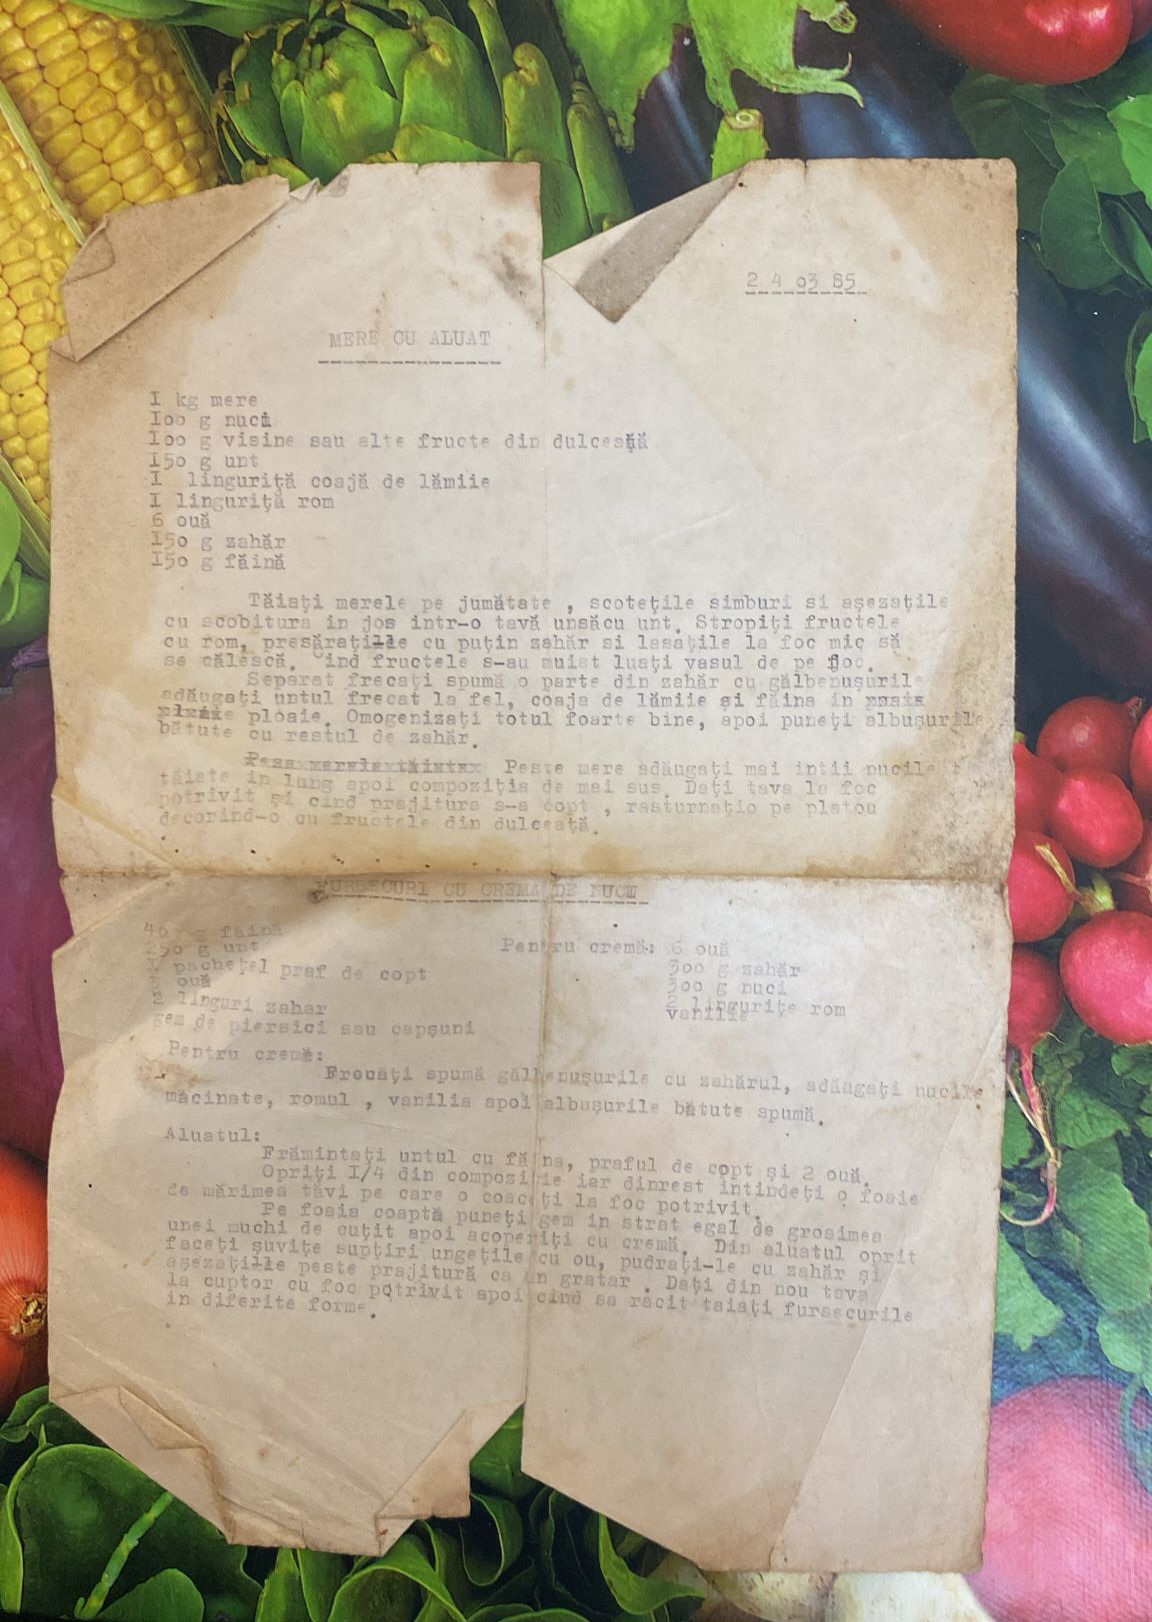 2 4 o3 85
MERE CU ALUAT
I kg mere
Ioo g nuci
Ioo g visine sau alte fructe din dulceaţă
I5o g unt
I linguriţă coajă de lămiie
I linguriţă rom
6 ouă
I5o g zahăr
I5o g făină
Tăiaţi merele pe jumătate , scoteţile simburi si aşezaţile
cu scobitura in jos intr-o tavă unsăcu unt. Stropiţi fructele
cu rom, presăraţille cu puţin zahăr si lasaţile la foc mic să
se călescă. ind fructele s-au muiat luaţi vasul de pe floc.
Separat frecaţi spumă o parte din zahăr cu gălbenuşurile
adăugaţi untul frecat la fel, coaja de lămiie şi făina in
ploaie. Omogenizaţi totul foarte bine, apoi puneţi albuşurile
bătute cu restul de zahăr.
Peste mere adăugaţi mai intii nucile
tăiate in lung apoi compoziţia de mai sus. Daţi tava la foc
potrivit şi cind prajitura s-a copt , rasturnaţio pe platou
decorind-o cu fructele din dulceaţă.
FURSECURI CU CREMA DE NUCI
g făină
250 g unt Pentru cremă: 6 ouă
I pacheţel praf de copt 3oo g zahăr
3 ouă 3oo g nuci
2 linguri zahar 2 linguriţe rom
vanilie
gem de piersici sau capşuni
Pentru cremă:
Frecăţi spumă gălbenuşurile cu zahărul, adăugaţi nucile
măcinate, romul , vanilia apoi albuşurile bătute spumă.
Aluatul:
Frămintaţi untul cu făina, praful de copt şi 2 ouă.
Opriţi I/4 din compoziţie iar dinrest intindeţi o foaie
de mărimea tăvi pe care o coaceţi la foc potrivit.
Pe foaia coaptă puneţi gem in strat egal de grosimea
unei muchi de cuţit apoi acoperiţi cu cremă. Din aluatul oprit
faceţi şuviţe supţiri ungeţile cu ou, pudraţi-le cu zahăr şi
aşezaţille peste prajitură ca un gratar . Daţi din nou tava
la cuptor cu foc potrivit apoi cind sa răcit taiaţi fursecurile
in diferite forme.